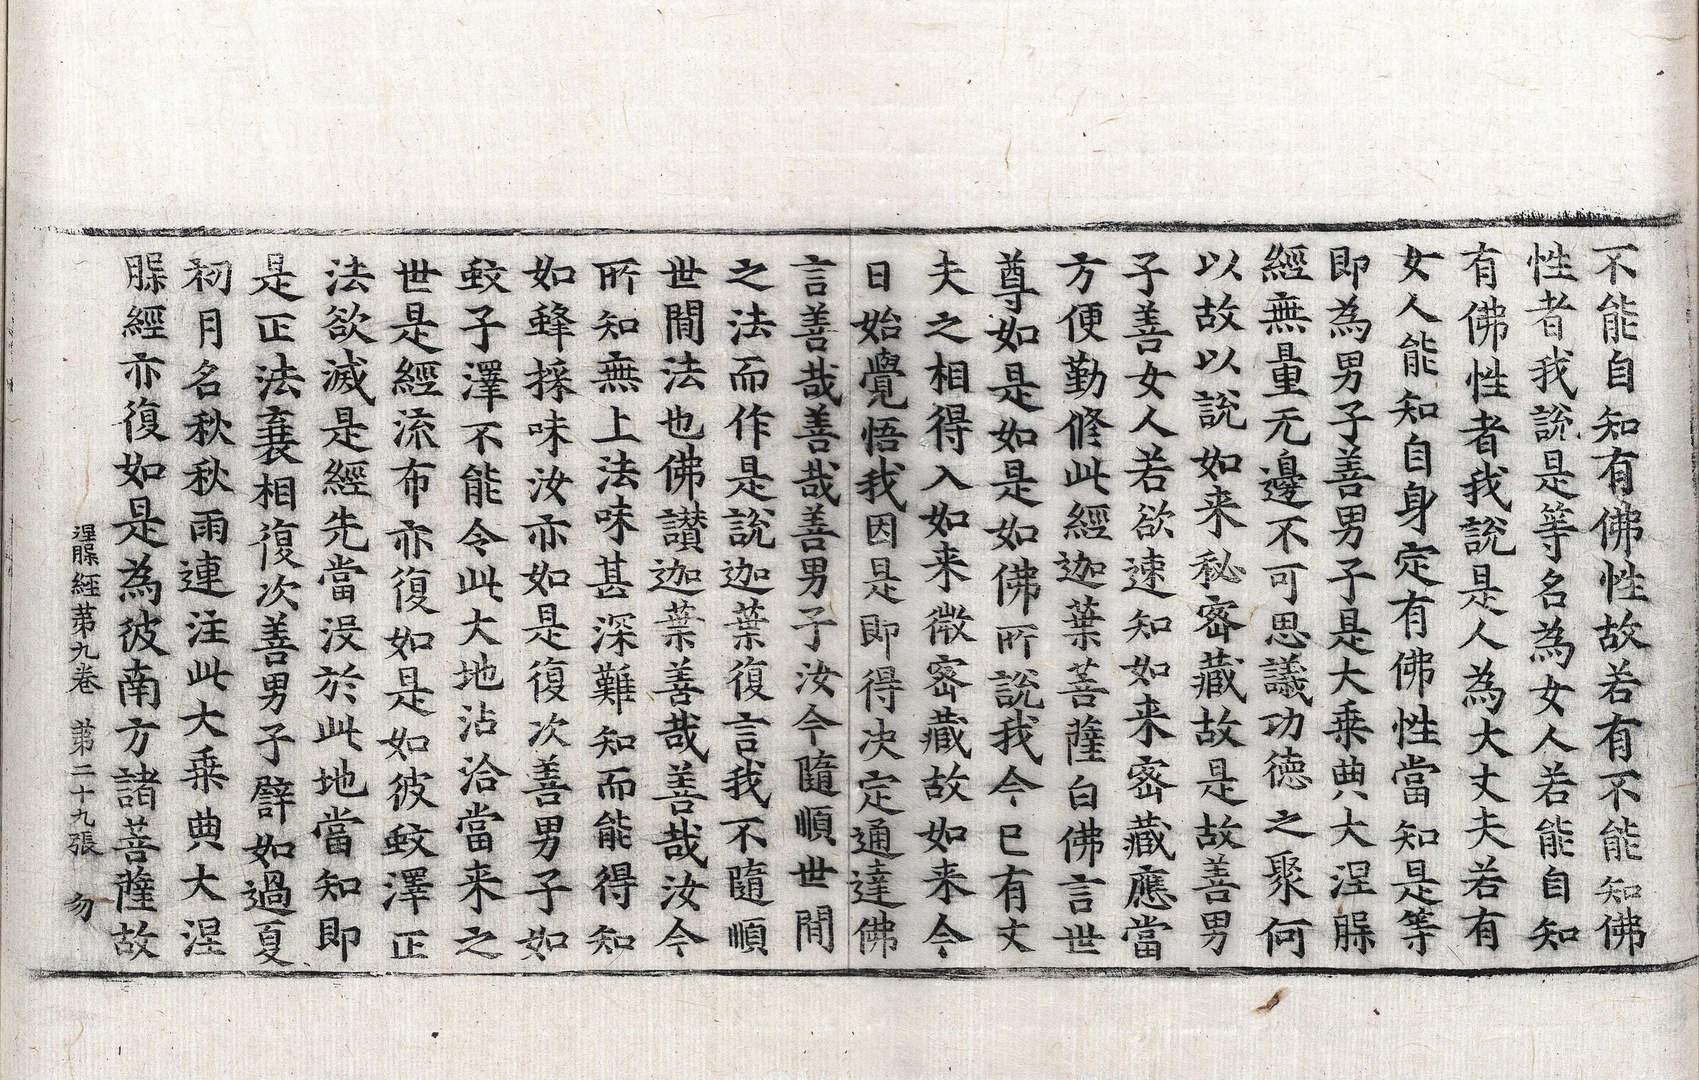 不能自知有佛性故若有不能知佛
性者我說是等名為女人若能自知
有佛性者我說是人為大丈夫若有
女人能知自身定有佛性當知是等
即為男子善男子是大乗典大涅槃
經無量无邊不可思議功德之聚何
以故以說如来秘密藏故是故善男
子善女人若欲速知如来密藏應當
方便勤修此經迦葉菩薩白佛言世
尊如是如是如佛所說我今已有丈
夫之相得入如来微密藏故如来今
日始覺悟我因是即得决定通達佛
言善哉善哉善男子汝今隨順世閒
之法而作是說迦葉復言我不隨順
世閒法也佛讃迦葉善哉善哉汝今
所知無上法味甚深難知而能得知
如蜂採味汝亦如是復次善男子如
蚊子澤不能令此大地沾洽當来之
世是經流布亦復如是如彼蚊澤正
法欲滅是經先當没於此地當知即
是正法衰相復次善男子譬如過夏
初月名秋秋雨連注此大乗典大涅
槃經亦復如是為彼南方諸菩薩故
涅槃經第九卷 第二十九張 勿